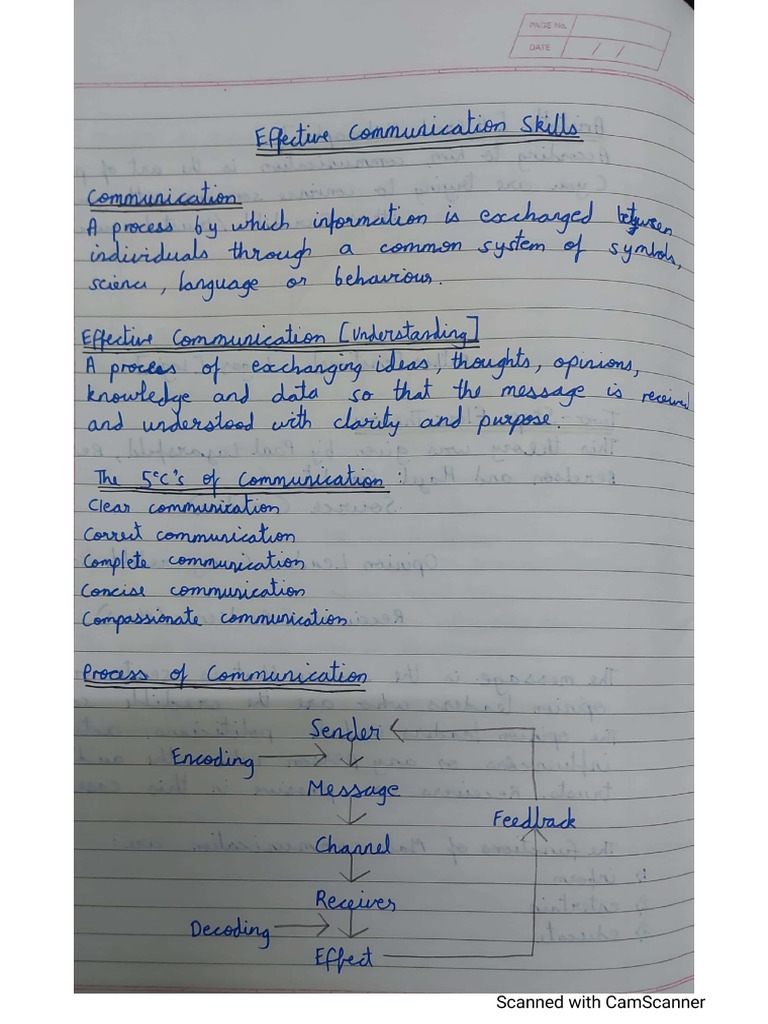 PAGE No.
DATE / /
Effective Communication Skills
Communication
A process by which information is exchanged between
individuals through a common system of symbols,
science, language or behaviour.
Effective Communication [Understanding]
A process of exchanging ideas, thoughts, opinions,
knowledge and data so that the message is received
and understood with clarity and purpose.
The 5 C's of Communication :
Clear communication
Correct communication
Complete communication
Concise communication
Compassionate communication
Process of Communication
Sender
Encoding
Message
Feedback
Channel
Receiver
Decoding
Effect
Scanned with CamScanner